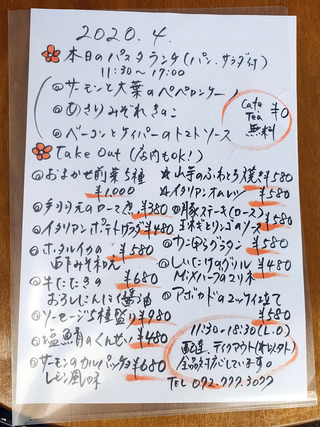 2020.4.
本日のパスタランチ(パン、サラダ付)
11:30〜17:00
サーモンと大葉のペペロンチーノ
あさりみぞれきのこ
ベーコンとケイパーのトマトソース
Cafe
Tea ¥0
無料
Take Out (店内もok!)
おまかせ前菜5種
¥1,000
手羽元のロースト ¥380
イタリアンポテトサラダ ¥480
ホタルイカの ¥580
牛たたきの ¥680
おろしにんにく醤油
ソーセージ5種盛り ¥980
塩鯖のくんせい ¥480
サーモンのカルパッチョ ¥680
レモン風味
☆山芋のふわとろ焼 ¥580
☆イタリアンオムレツ ¥580
豚ステーキ(ロース)
玉ねぎとリンゴのソース ¥580
かにほうらグラタン ¥580
しいたけのグリル ¥480
Mixハーブのマリネ
アボカドの
11:30-18:30(L.O)
配達、テイクアウト
全品対応しています。
TEL 092-777-3077